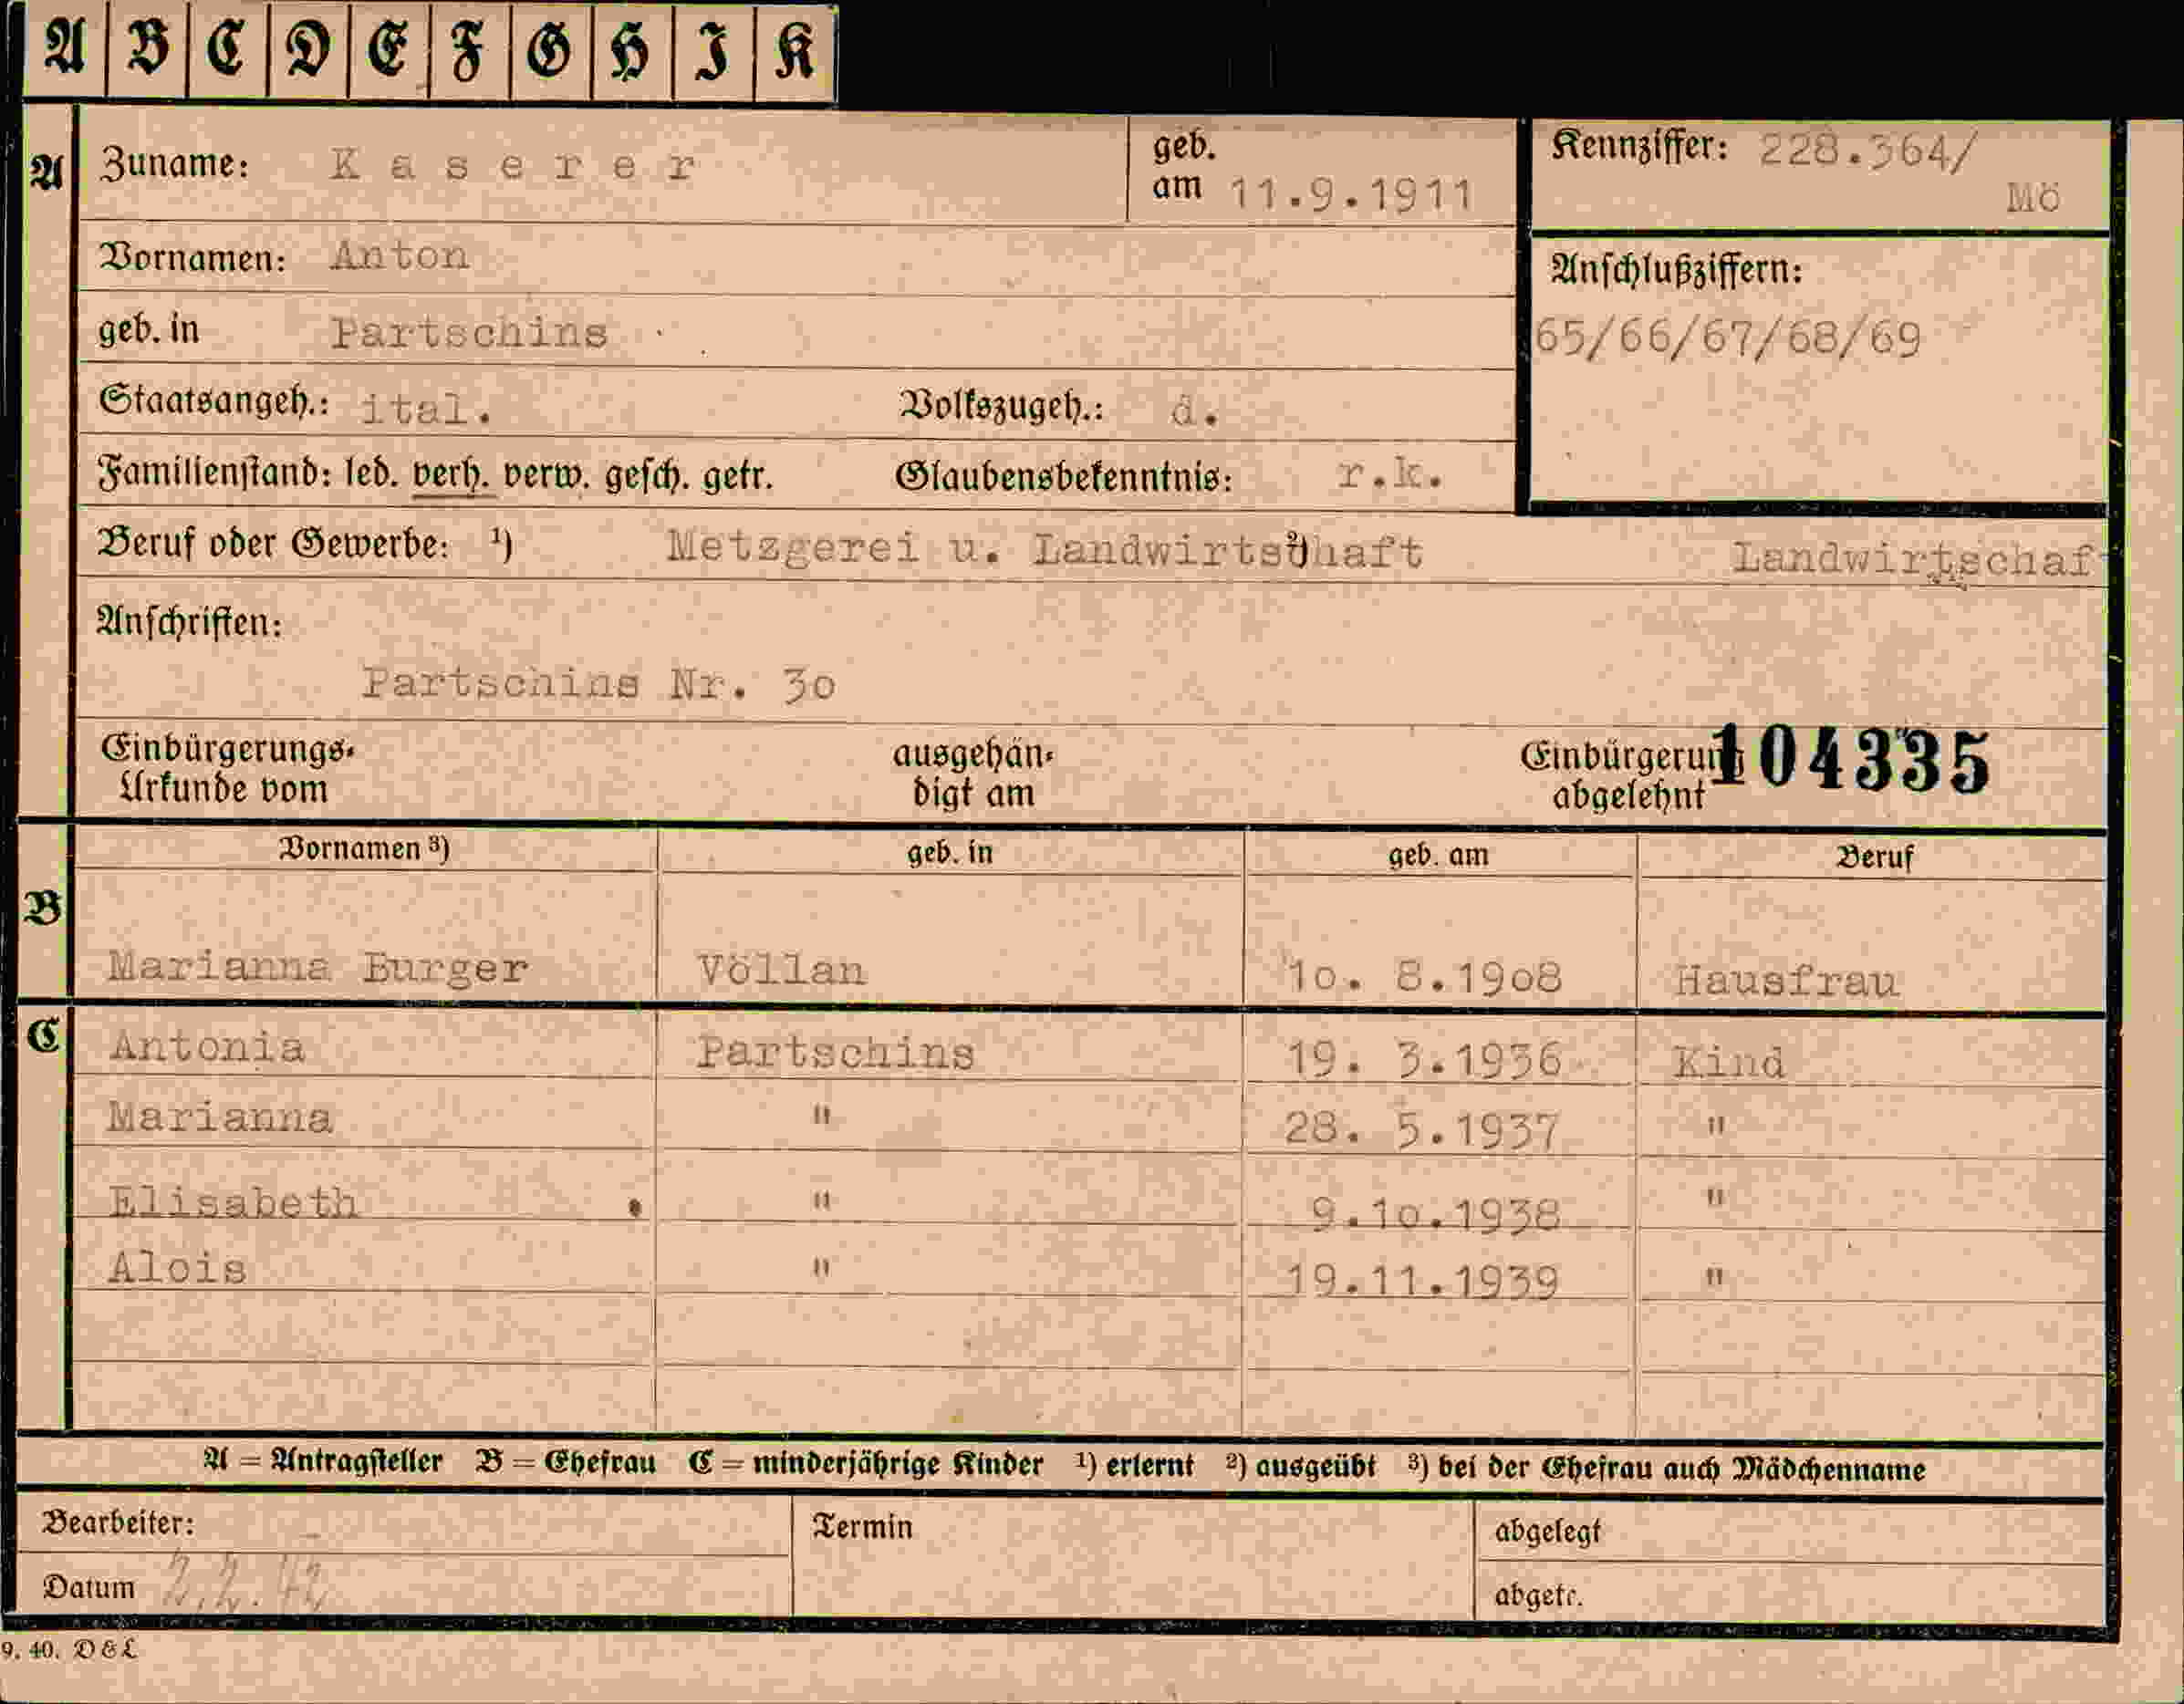 A B C D E F G H I K
A Zuname: Kaserer geb. am 11.9.1911 Kennziffer: 228.364/
Mö
Vornamen: Anton Anschlußziffern:
geb. in Partschins 65/66/67/68/69
Staatsangeh.: ital. Volkszugeh.: d.
Familienstand: led. verh. verw. gesch. getr. Glaubensbekenntnis: r.k.
Beruf oder Gewerbe: ¹) Metzgerei u. Landwirtschaft ²) Landwirtschaf
Anschriften:
Partschins Nr. 30
Einbürgerungs- ausgehän- Einbürgerung 104335
Urkunde vom digt am abgelehnt
Vornamen ³) geb. in geb. am Beruf
B
Marianna Burger Völlan 10. 8.1908 Hausfrau
C Antonia Partschins 19. 3.1936 Kind
Marianna " 28. 5.1937 "
Elisabeth " 9.10.1938 "
Alois " 19.11.1939 "
A = Antragsteller B = Ehefrau C = minderjährige Kinder ¹) erlernt ²) ausgeübt ³) bei der Ehefrau auch Mädchenname
Bearbeiter: Termin abgelegt
Datum 2.2.42 abgetr.
9. 40. D & L